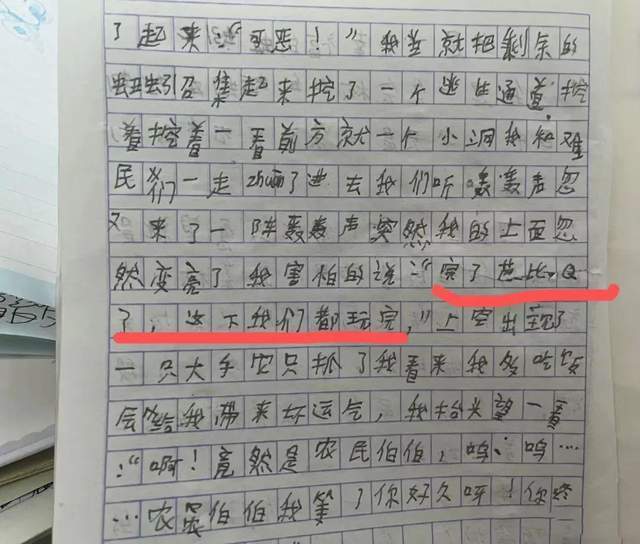 了起来:“可恶！”我并就把剩余的
蚯蚓召集起来挖了一个逃生通道,挖
着挖着一看前方就一个小洞我和难
民们一走zhuan了进去我们听轰轰声忽
又来了一阵轰轰声突然我的上面忽
然变亮了我害怕的说:“完了芭比Q
了，这下我们都玩完,”上空出现了
一只大手它只抓了我看来我多吃饭
会给我带来坏运气，我抬头望一看
:“啊！竟然是农民伯伯，呜、呜…
…农民伯伯我等了你好久呀！你终